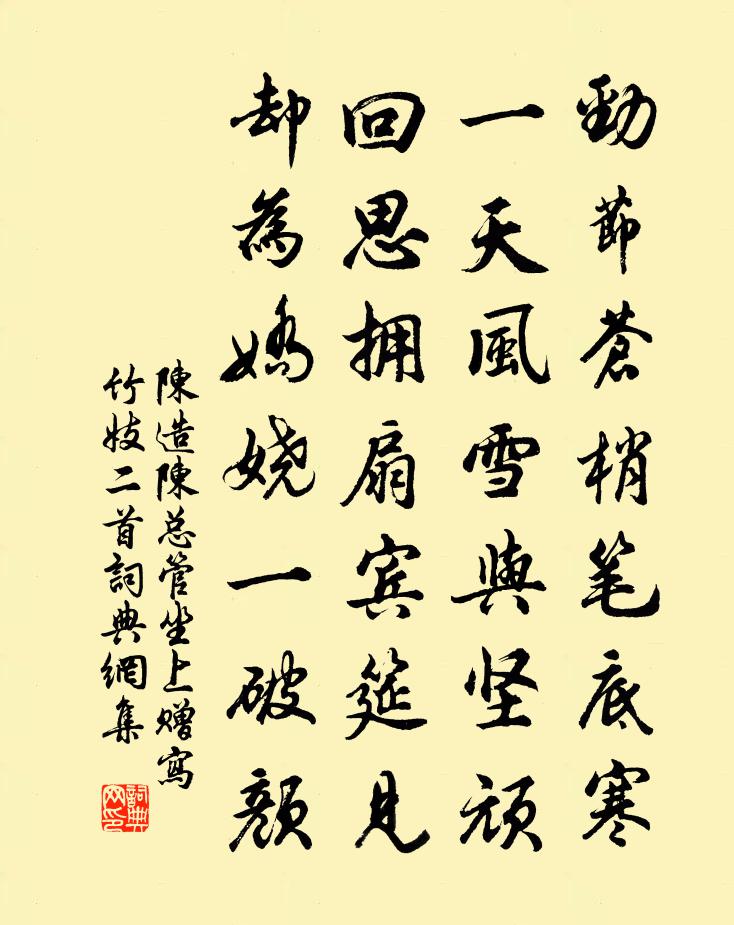 勁節蒼梢笔底寒
一天風雪與坚頑
回思拥扇宾筵見
却為嬌娆一破顏
陳造陳总管坐上赠寫
竹妓二首詞典網集
詞典
网印